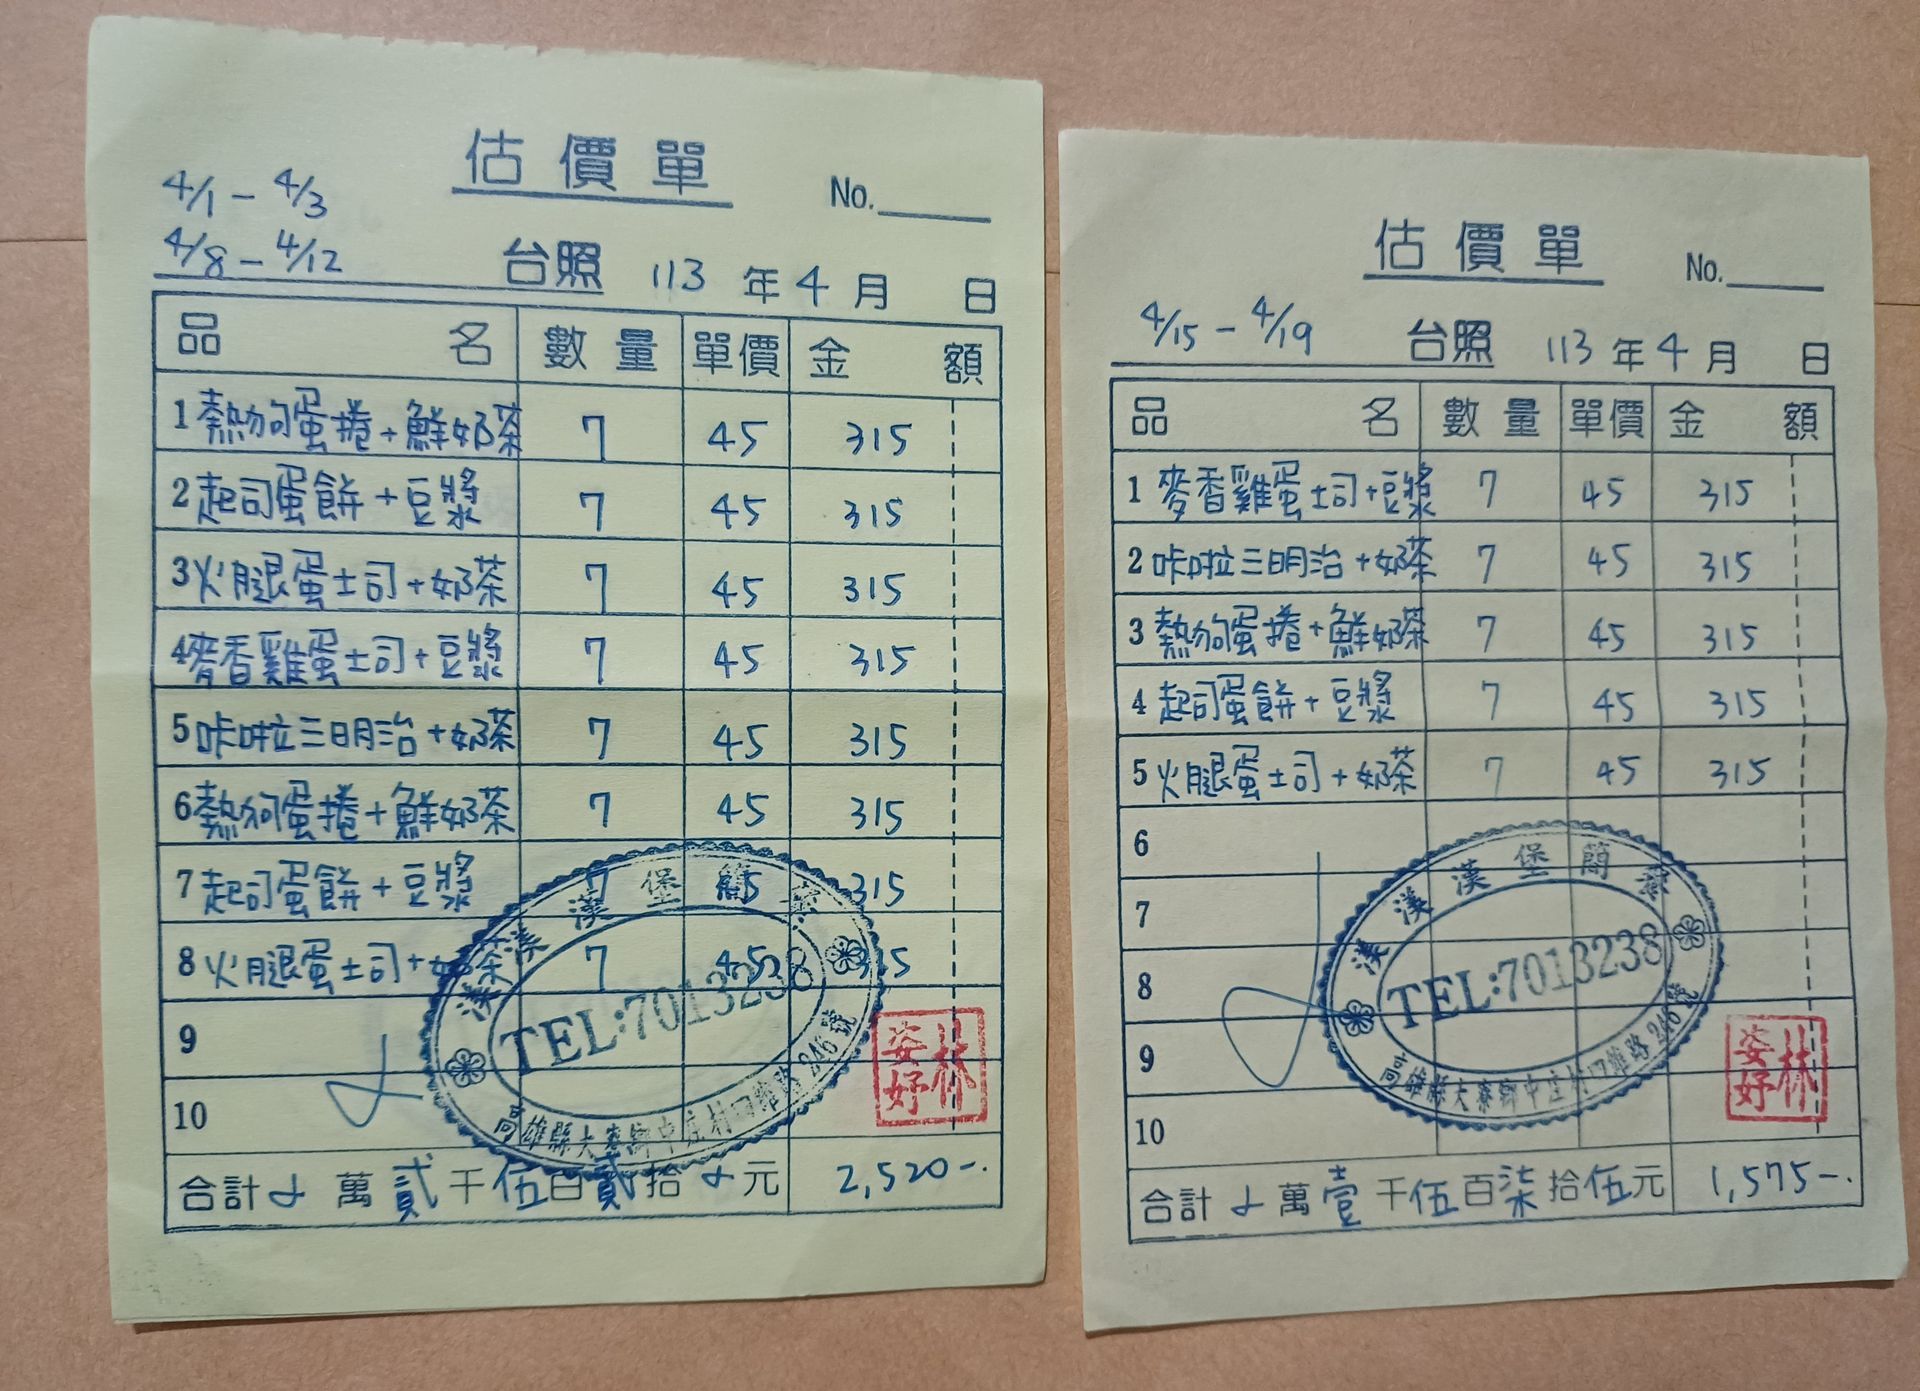 估價單
No.
4/1 - 4/3
4/8 - 4/12 台照 113 年 4 月 日
品名 數量 單價 金額
1 熱狗蛋捲+鮮奶茶 7 45 315
2 起司蛋餅+豆漿 7 45 315
3 火腿蛋土司+奶茶 7 45 315
4 麥香雞蛋土司+豆漿 7 45 315
5 咔啦三明治+奶茶 7 45 315
6 熱狗蛋捲+鮮奶茶 7 45 315
7 起司蛋餅+豆漿 7 45 315
8 火腿蛋土司+奶茶 7 45 315
9
10
漢漢漢堡簡餐
TEL:7013238
高雄縣大寮鄉中庄村四維路246號
林姿妤
合計 萬貳千伍百貳拾 元 2,520-.
估價單
No.
4/15 - 4/19 台照 113 年 4 月 日
品名 數量 單價 金額
1 麥香雞蛋土司+豆漿 7 45 315
2 咔啦三明治+奶茶 7 45 315
3 熱狗蛋捲+鮮奶茶 7 45 315
4 起司蛋餅+豆漿 7 45 315
5 火腿蛋土司+奶茶 7 45 315
6
7
8
9
10
漢漢漢堡簡餐
TEL:7013238
高雄縣大寮鄉中庄村四維路246號
林姿妤
合計 萬壹千伍百柒拾伍元 1,575-.